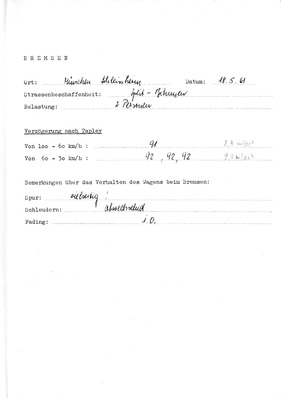 BREMSEN
Ort: München Datum: 18.5.61
Strassenbeschaffenheit:
Belastung: 2 Personen
Verzögerung nach Tapley
Von 100 - 60 km/h : 91
Von 60 - 30 km/h : 92, 92, 92
Bemerkungen über das Verhalten des Wagens beim Bremsen:
Spur:
Schleudern: abwechselnd
Fading: i.O.